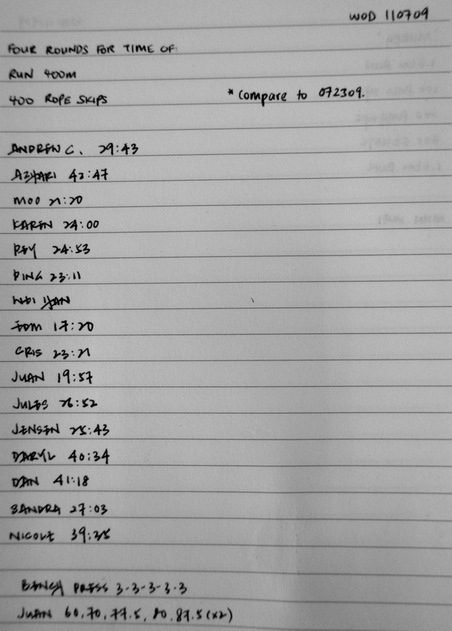 WOD 110709
FOUR ROUNDS FOR TIME OF:
RUN 400M
400 ROPE SKIPS
* Compare to 072309.
ANDREW C. 29:43
AZHARI 42:47
MOO 21:20
KAREN 24:00
REY 24:53
PING 23:11
WEI YAN
TOM 17:20
CRIS 23:21
JUAN 19:57
JULES 26:52
JENSEN 25:43
DARYL 40:34
DAN 41:18
SANDRA 27:03
NICOLE 39:35
BENCH PRESS 3-3-3-3-3
JUAN 60, 70, 77.5, 80, 87.5 (x2)